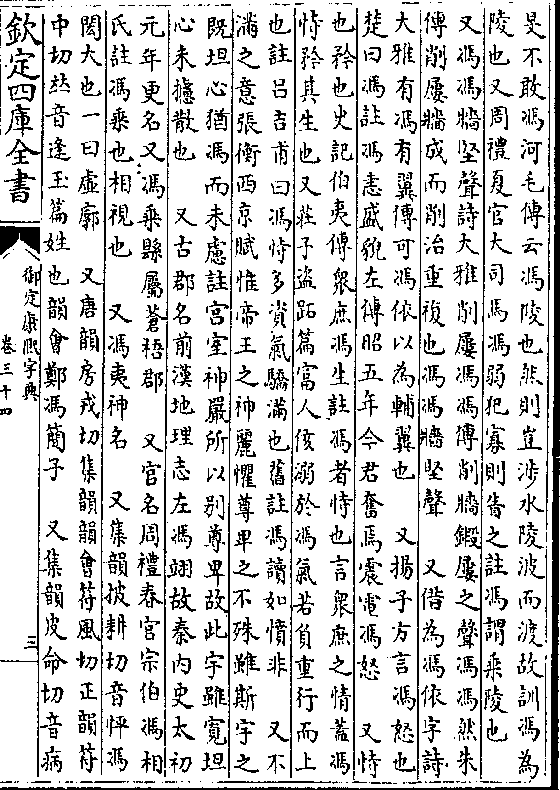 旻不敢馮河毛傳云馮陵也然則空涉水陵波而渡故訓馮為
陵也又周禮夏官大司馬馮弱犯寡則眚之註馮謂乘陵也
又馮馮牆堅聲詩大雅削屢馮馮傳削牆鍛屢之聲馮馮然朱
傳削屢牆成而削治重複也馮馮牆堅聲　又偕為馮依字詩
大雅有馮有翼傳可馮依以為輔翼也　又揚子方言馮怒也
楚曰馮註馮恚盛貌左傳昭五年今君奮焉震電馮怒　又恃
也矜也史記伯夷傳衆庶馮生註馮者恃也言衆庶之情蓋馮
恃矜其生也又莊子盜跖篇富人侅溺於馮氣若負重行而上
也註吕吉甫曰馮恃多資氣驕滿也舊註馮讀如憤非　又不
滿之意張衡西京賦惟帝王之神麗懼尊卑之不殊雖斯宇之
既坦心猶馮而未攄註宫室神嚴所以别尊卑故此宇雖寛坦
心未攄散也　又古郡名前漢地理志左馮翊故秦内史太初
元年更名又馮乘縣屬蒼梧郡　又官名周禮春官宗伯馮相
氏註馮乘也相視也　又馮夷神名　又集韻披耕切音怦馮
閎大也一曰虚廓　又唐韻房戎切集韻韻會符風切正韻符
中切𠀤音逢玉篇姓也韻會鄭馮簡子　又集韻皮命切音病
欽定四庫全書
御定康熙字典
卷三十四
三